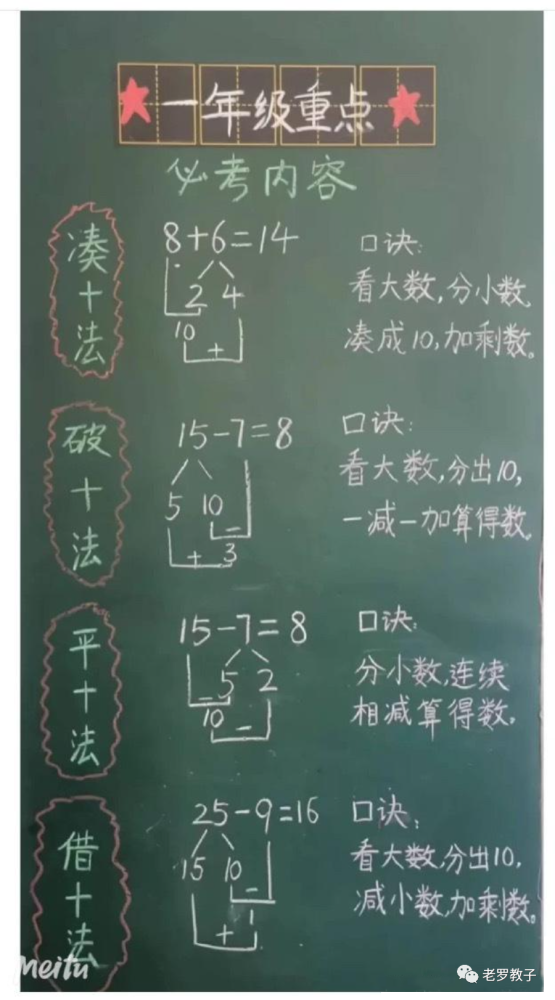 一年级重点
必考内容
凑十法
8+6=14
2 4
10
+
口诀:
看大数,分小数。
凑成10,加剩数。
破十法
15-7=8
5 10
-
+ 3
口诀:
看大数,分出10,
一减一加算得数。
平十法
15-7=8
- 5 2
10 -
口诀:
分小数,连续
相减算得数。
借十法
25-9=16
15 10
-
+ 1
口诀:
看大数,分出10,
减小数,加剩数。
Meitu
老罗教子